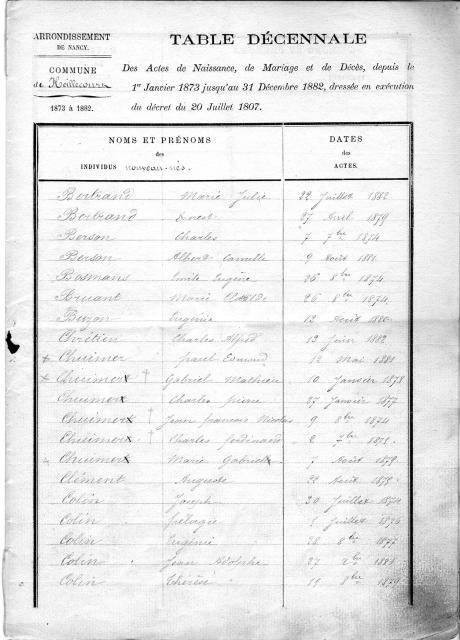 ARRONDISSEMENT
DE NANCY.
COMMUNE
de Heillecourt
1873 à 1882.
TABLE DÉCENNALE
Des Actes de Naissance, de Mariage et de Décès, depuis le
1er Janvier 1873 jusqu'au 31 Décembre 1882, dressée en exécution
du décret du 20 Juillet 1807.
NOMS ET PRÉNOMS
des
INDIVIDUS nouveau-nés.
DATES
des
ACTES.
Bertrand Marie Julie 22 Juillet 1882
Bertrand Ernest 27 Avril 1879
Berson Charles 7 7bre 1874
Berson Albert Camille 9 Août 1881
Bosmans Emile Eugène 26 8bre 1874
Bruant Marie 26 8bre 1874
Buzon Eugénie 12 Août 1880
Chrétien Charles Alfred 13 1882
Chuimer paul Edmond 12 Mai 1881
Chuimer † Gabriel Mathieu 10 Janvier 1878
Chuimer Charles pierre 27 Janvier 1877
Chuimer † Jean francois Nicolas 9 8bre 1874
Chuimer † Charles ferdinand 2 7bre 1875
Chuimer Marie Gabriel 7 Août 1879
Clément Auguste Août 1875
Colin Joseph 20 Juillet 1874
Colin pélagie Juillet 1876
Colin Eugénie 26 8bre 1877
Colin Jean Adolphe 27 1881
Colin Thérèse 8bre 1879